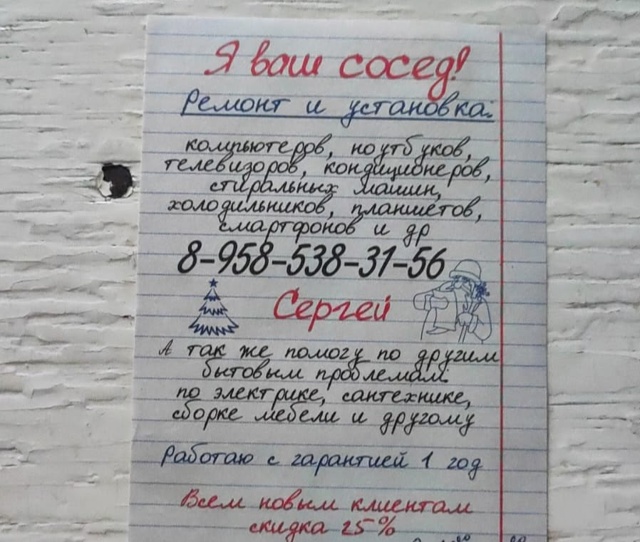 Я ваш сосед!
Ремонт и установка:
компьютеров, ноутбуков,
телевизоров, кондиционеров,
стиральных машин,
холодильников, планшетов,
смартфонов и др
8-958-538-31-56
Сергей
А так же помогу по другим
бытовым проблемам:
по электрике, сантехнике,
сборке мебели и другому
Работаю с гарантией 1 год
Всем новым клиентам
скидка 25%